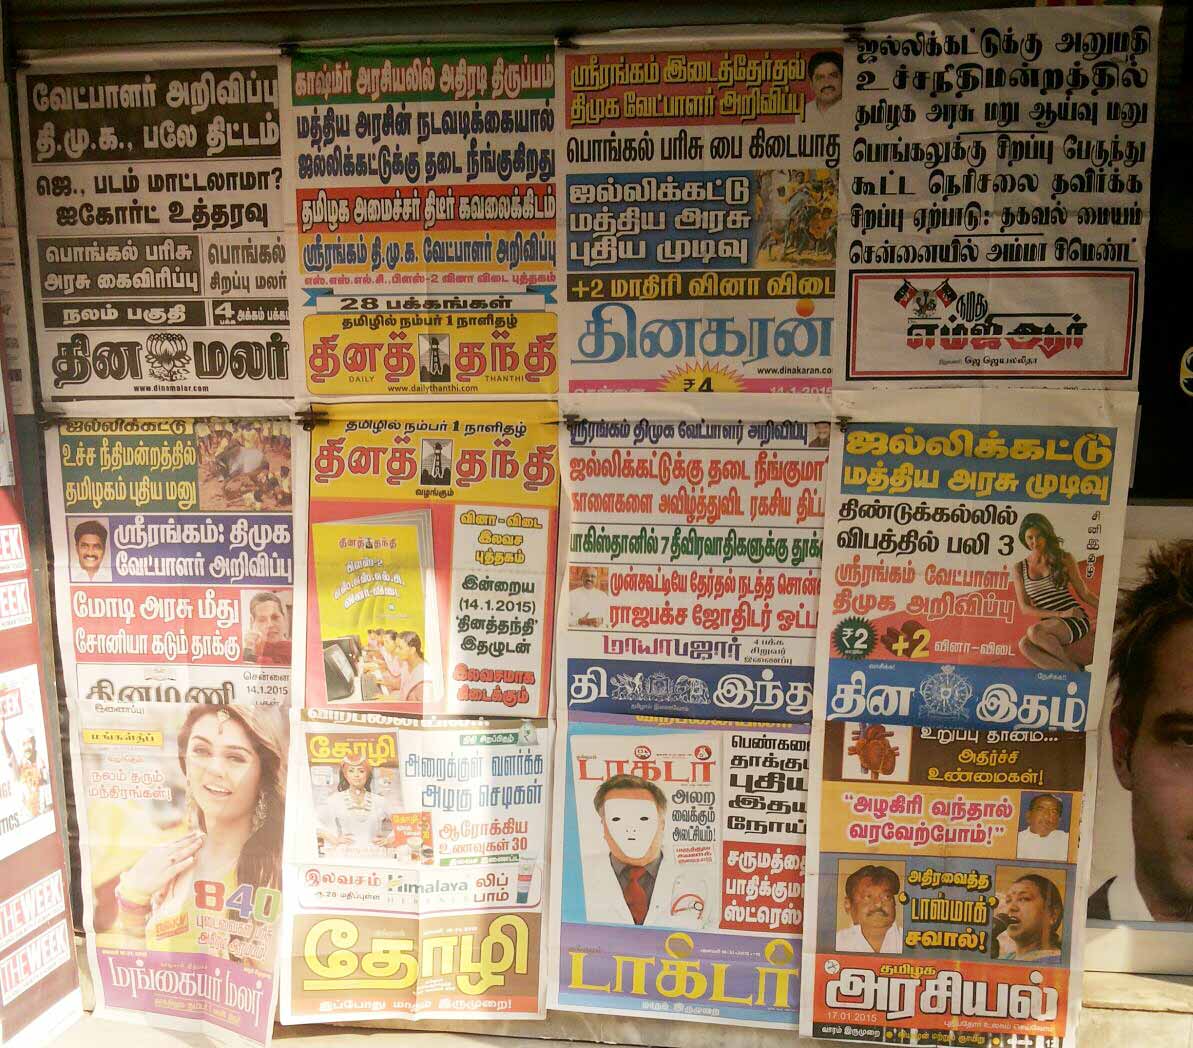 வேட்பாளர் அறிவிப்பு
தி.மு.க., பலே திட்டம்
ஜெ., படம் மாட்டலாமா?
ஐகோர்ட் உத்தரவு
பொங்கல் பரிசு
அரசு கைவிரிப்பு
பொங்கல்
சிறப்பு மலர்
நலம் பகுதி
4
தின மலர்
www.dinamalar.com
காஷ்மீர் அரசியலில் அதிரடி திருப்பம்
மத்திய அரசின் நடவடிக்கையால்
ஜல்லிக்கட்டுக்கு தடை நீங்குகிறது
தமிழக அமைச்சர் திடீர் கவலைக்கிடம்
ஸ்ரீரங்கம் தி.மு.க. வேட்பாளர் அறிவிப்பு
எஸ்.எஸ்.எல்.சி., பிளஸ்-2 வினா விடை புத்தகம்
28 பக்கங்கள்
தமிழில் நம்பர் 1 நாளிதழ்
தினத் தந்தி
DAILY THANTHI
www.dailythanthi.com
ஸ்ரீரங்கம் இடைத்தேர்தல்
திமுக வேட்பாளர் அறிவிப்பு
பொங்கல் பரிசு பை கிடையாது
ஜல்லிக்கட்டு
மத்திய அரசு
புதிய முடிவு
+2 மாதிரி வினா விடை
தினகரன்
www.dinakaran.co
₹4
14-1-2015
ஜல்லிக்கட்டுக்கு அனுமதி
உச்சநீதிமன்றத்தில்
தமிழக அரசு மறு ஆய்வு மனு
பொங்கலுக்கு சிறப்பு பேருந்து
கூட்ட நெரிசலை தவிர்க்க
சிறப்பு ஏற்பாடு: தகவல் மையம்
சென்னையில் அம்மா சிமெண்ட்
நமது
எம்ஜிஆர்
நிறுவனர்: ஜெ ஜெயலலிதா
ஜல்லிக்கட்டு
உச்ச நீதிமன்றத்தில்
தமிழகம் புதிய மனு
ஸ்ரீரங்கம்: திமுக
வேட்பாளர் அறிவிப்பு
மோடி அரசு மீது
சோனியா கடும் தாக்கு
தினமணி
சென்னை
14.1.2015
தமிழில் நம்பர் 1 நாளிதழ்
தினத் தந்தி
வழங்கும்
தினத்தந்தி
பிளஸ்-2
எஸ்.எஸ்.எல்.சி.
வினா-விடை
வினா-விடை
இலவச
புத்தகம்
இன்றைய
(14.1.2015)
'தினத்தந்தி'
இதழுடன்
இலவசமாக
கிடைக்கும்
ஸ்ரீரங்கம் திமுக வேட்பாளர் அறிவிப்பு
ஜல்லிக்கட்டுக்கு தடை நீங்குமா
காளைகளை அவிழ்த்துவிட ரகசிய திட்ட
பாகிஸ்தானில் 7 தீவிரவாதிகளுக்கு தூக்கு
முன்கூட்டியே தேர்தல் நடத்த சொன்ன
ராஜபக்ச ஜோதிடர் ஓட்ட
மாயாபஜார்
4 பக்க
சிறுவர்
இணைப்பு
தி இந்து
ஜல்லிக்கட்டு
மத்திய அரசு முடிவு
திண்டுக்கல்லில்
விபத்தில் பலி 3
ஸ்ரீரங்கம் வேட்பாளர்
திமுக அறிவிப்பு
₹2
+2 வினா-விடை
தின இதழ்
இணைப்பு!
மங்கள்தீப்
வழங்கும்
நலம் தரும்
மந்திரங்கள்!
840
மங்கையர் மலர்
தோழி
அறைக்குள் வளர்க்க
அழகு செடிகள்
ஆரோக்கிய
உணவுகள் 30
இலவசம்
Himalaya
HERBALS
லிப்
பாம்
தோழி
இப்போது மாதம் இருமுறை!
டாக்டர்
அலற
வைக்கும்
அலட்சியம்!
பெண்களை
தாக்கும்
புதிய
இதய
நோய்
சருமத்தை
பாதிக்கும்
ஸ்ட்ரெஸ்
டாக்டர்
மாதம் இருமுறை
உறுப்பு தானம்...
அதிர்ச்சி
உண்மைகள்!
"அழகிரி வந்தால்
வரவேற்போம்!"
அதிரவைத்த
'டாஸ்மாக்'
சவால்!
தமிழக
அரசியல்
17.01.2015
வாரம் இருமுறை
THE WEEK
THE WEEK